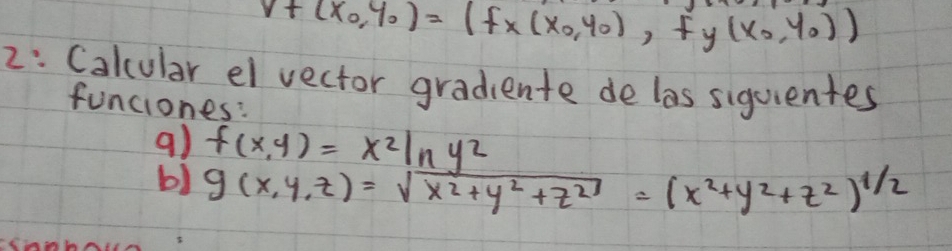 ∇f(x₀,y₀) = (fx(x₀,y₀), fy(x₀,y₀))
2: Calcular el vector gradiente de las siguientes
funciones:
a) f(x,y) = x² ln y²
b) g(x,y,z) = √(x²+y²+z²) = (x²+y²+z²)^1/2